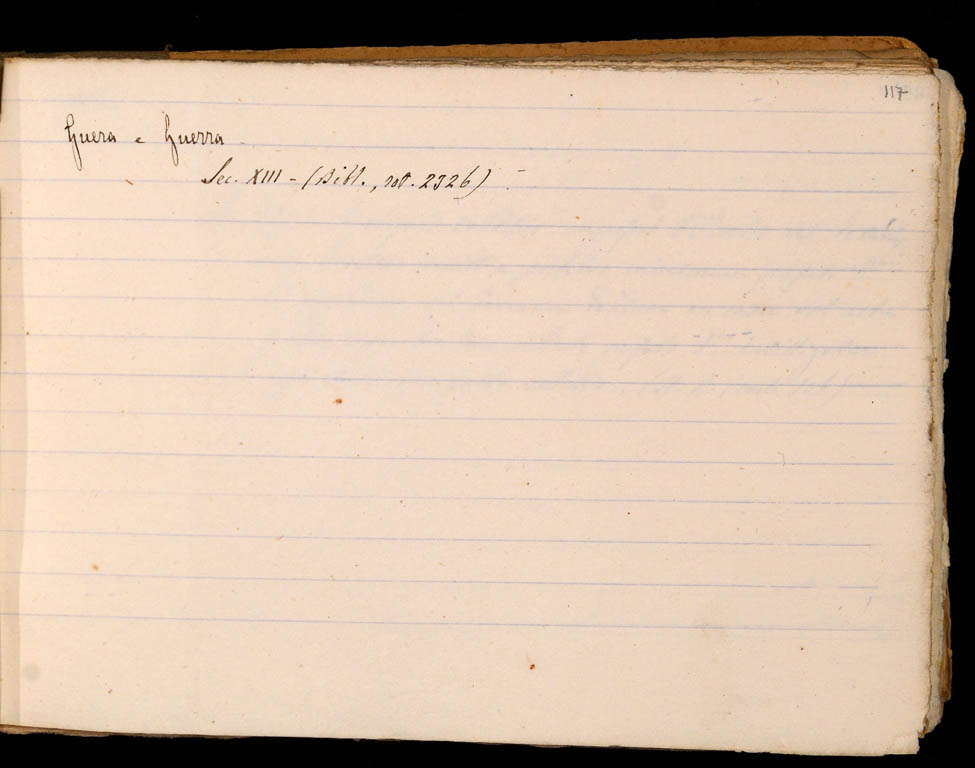 117
Guera e Guerra
Sec. XIII - (Bibl., rot. 2326)